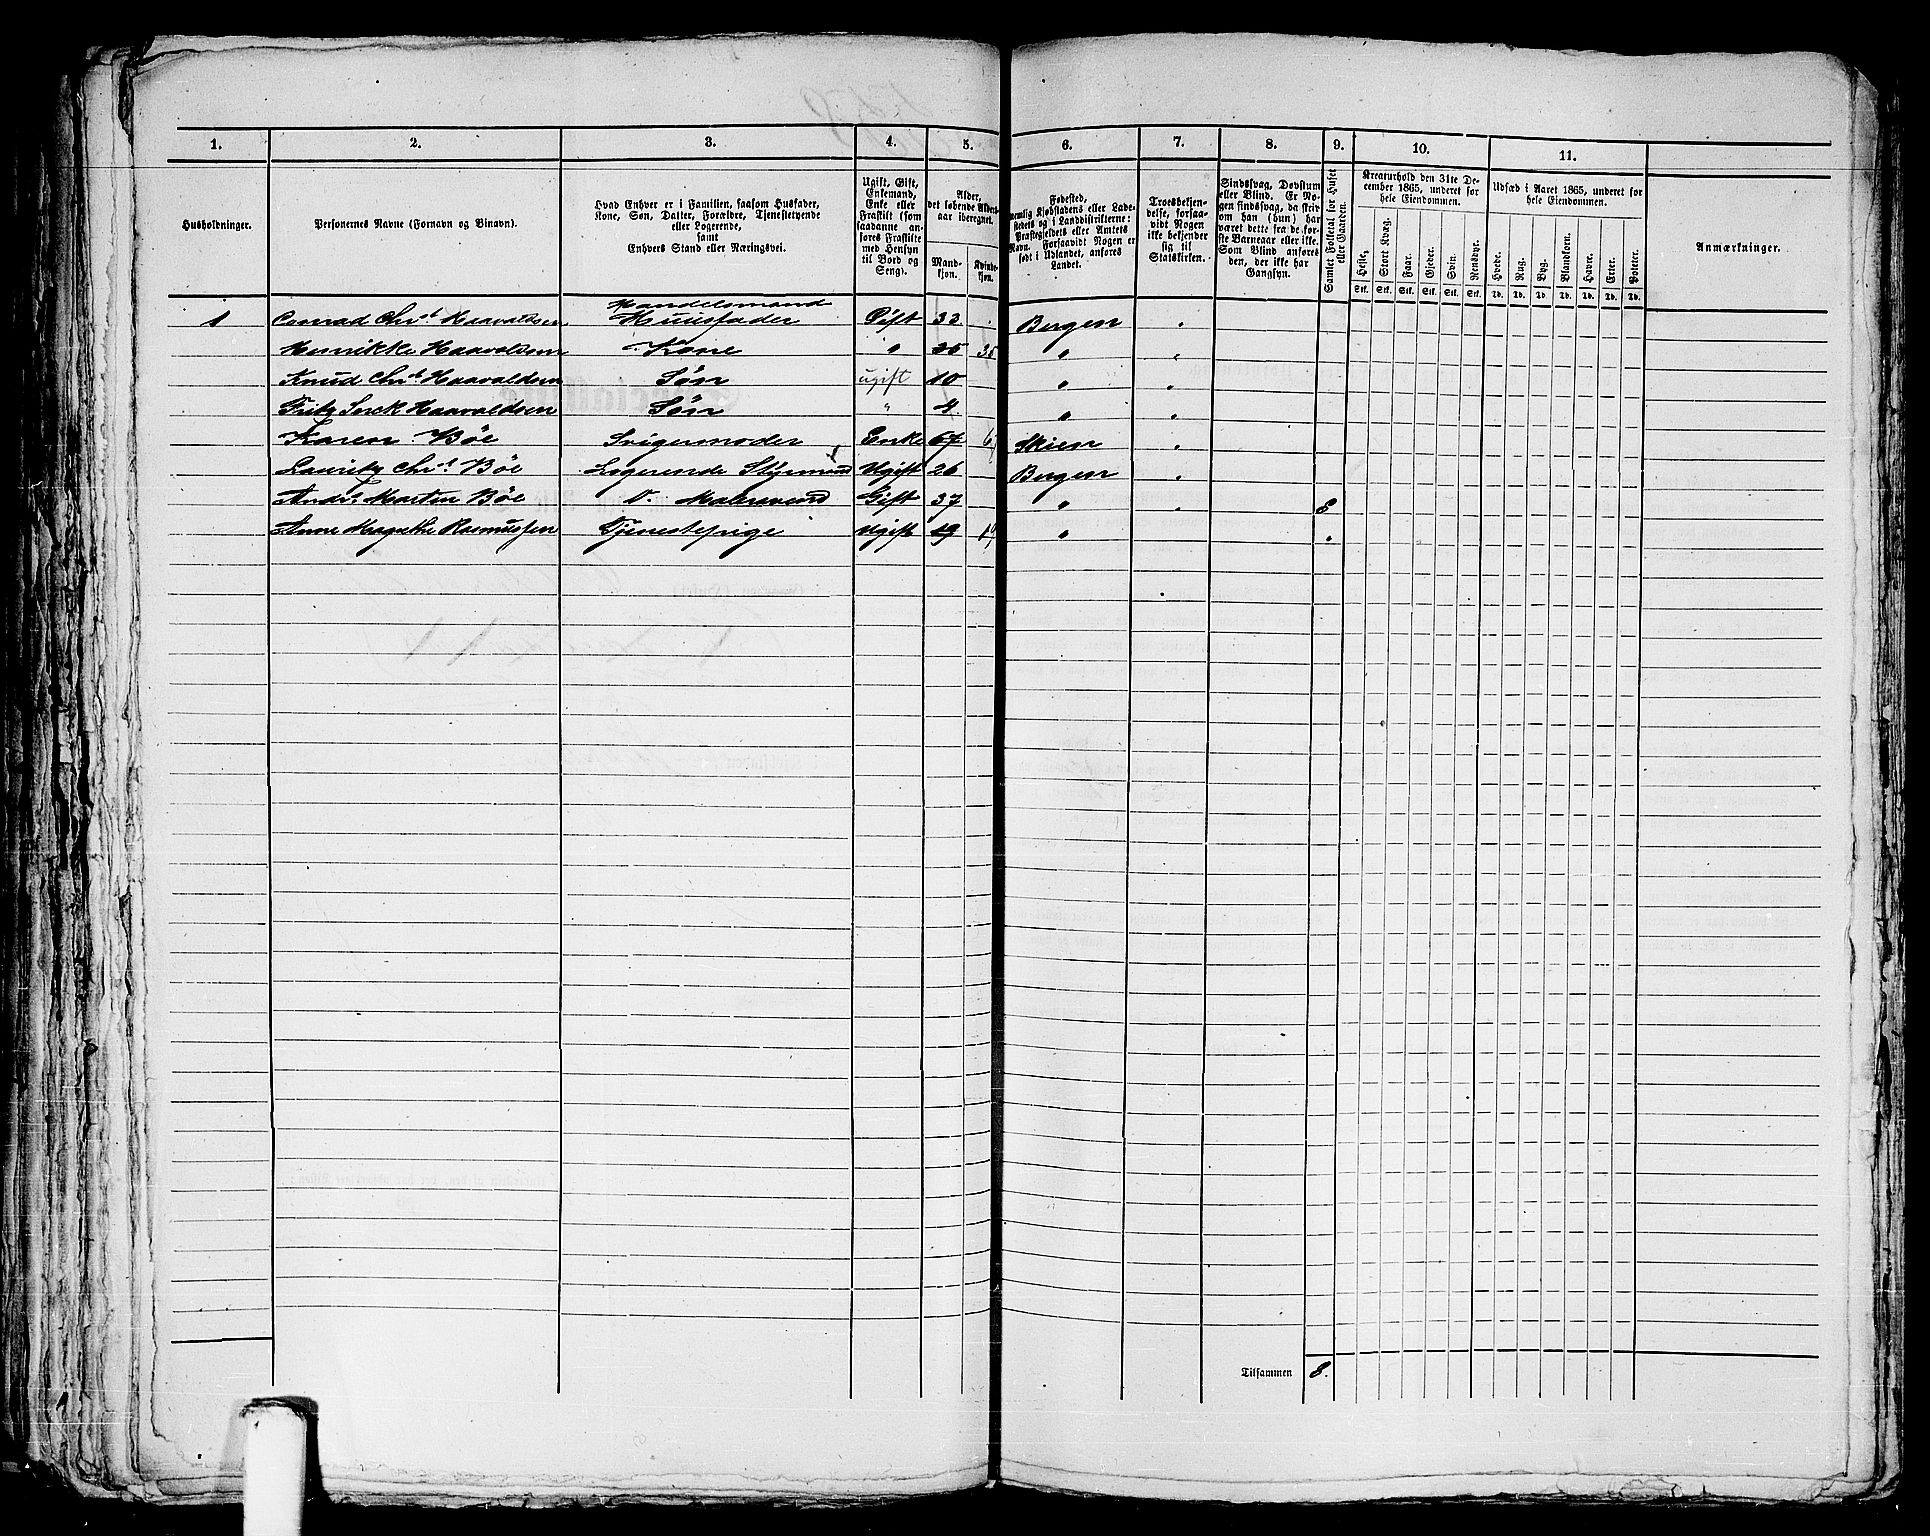 1. 2. 3. 4. 5. 6. 7. 8. 9. 10. 11.
Husholdninger.
Personernes Navne (Fornavn og Binavn).
Hvad Enhver er i Familien, saasom Husfader,
Kone, Søn, Datter, Forældre, Tjenestetyende
eller Logerende,
samt
Enhvers Stand eller Næringsvei.
Ugift, Gift,
Enkemand,
Enke eller
Fraskilt (som
saadanne an-
føres Fraskilte
med Hensyn
til Bord og
Seng).
Alder,
det løbende Alders-
aar iberegnet.
Mand-
kjøn.
Kvinde-
kjøn.
Fødested,
nemlig Kjøbstadens eller Lade-
stedets og i Landdistrikterne:
Præstegjeldets eller Amtets
Navn. Forsaavidt Nogen er
født i Udlandet, anføres
Landet.
Troesbekjen-
delse, forsaa-
vidt Nogen
ikke bekjender
sig til
Statskirken.
Sindssvag, Døvstum
eller Blind. Er No-
gen sindssvag, da skriv
om han (hun) har
været dette fra de før-
ste Barneaar eller ikke.
Som Blind anføres
den, der ikke har
Gangsyn.
Samlet Folketal for Huset
eller Gaarden.
Kreaturhold den 31te De-
cember 1865, underet for
hele Eiendommen.
Heste. Stort Kvæg. Faar. Gjeder. Svin. Rensdyr.
Stk. Stk. Stk. Stk. Stk. Stk.
Udsæd i Aaret 1865, underet for
hele Eiendommen.
Hvede. Rug. Byg. Blandkorn. Havre. Erter. Poteter.
Td. Td. Td. Td. Td. Td. Td.
Anmærkninger.
Handelsmand
1 Conrad Chr. Haavaldsen Huusfader Gift 33 Bergen "
Henrikke Haavaldsen Kone " 35 35 " "
Knud Chr. Haavaldsen Søn ugift 10 " "
Fritz Haavaldsen Søn " 4 " "
Karen Bøe Svigermoder Enke 67 67 Skien "
Lauritz Chr. Bøe Logerende Styrmand Ugift 26 Bergen "
Andr. Martin Bøe Gift 37 " " 8
Anne Magrethe Rasmussen Tjenestepige Ugift 19 19 "
Tilsammen 8.